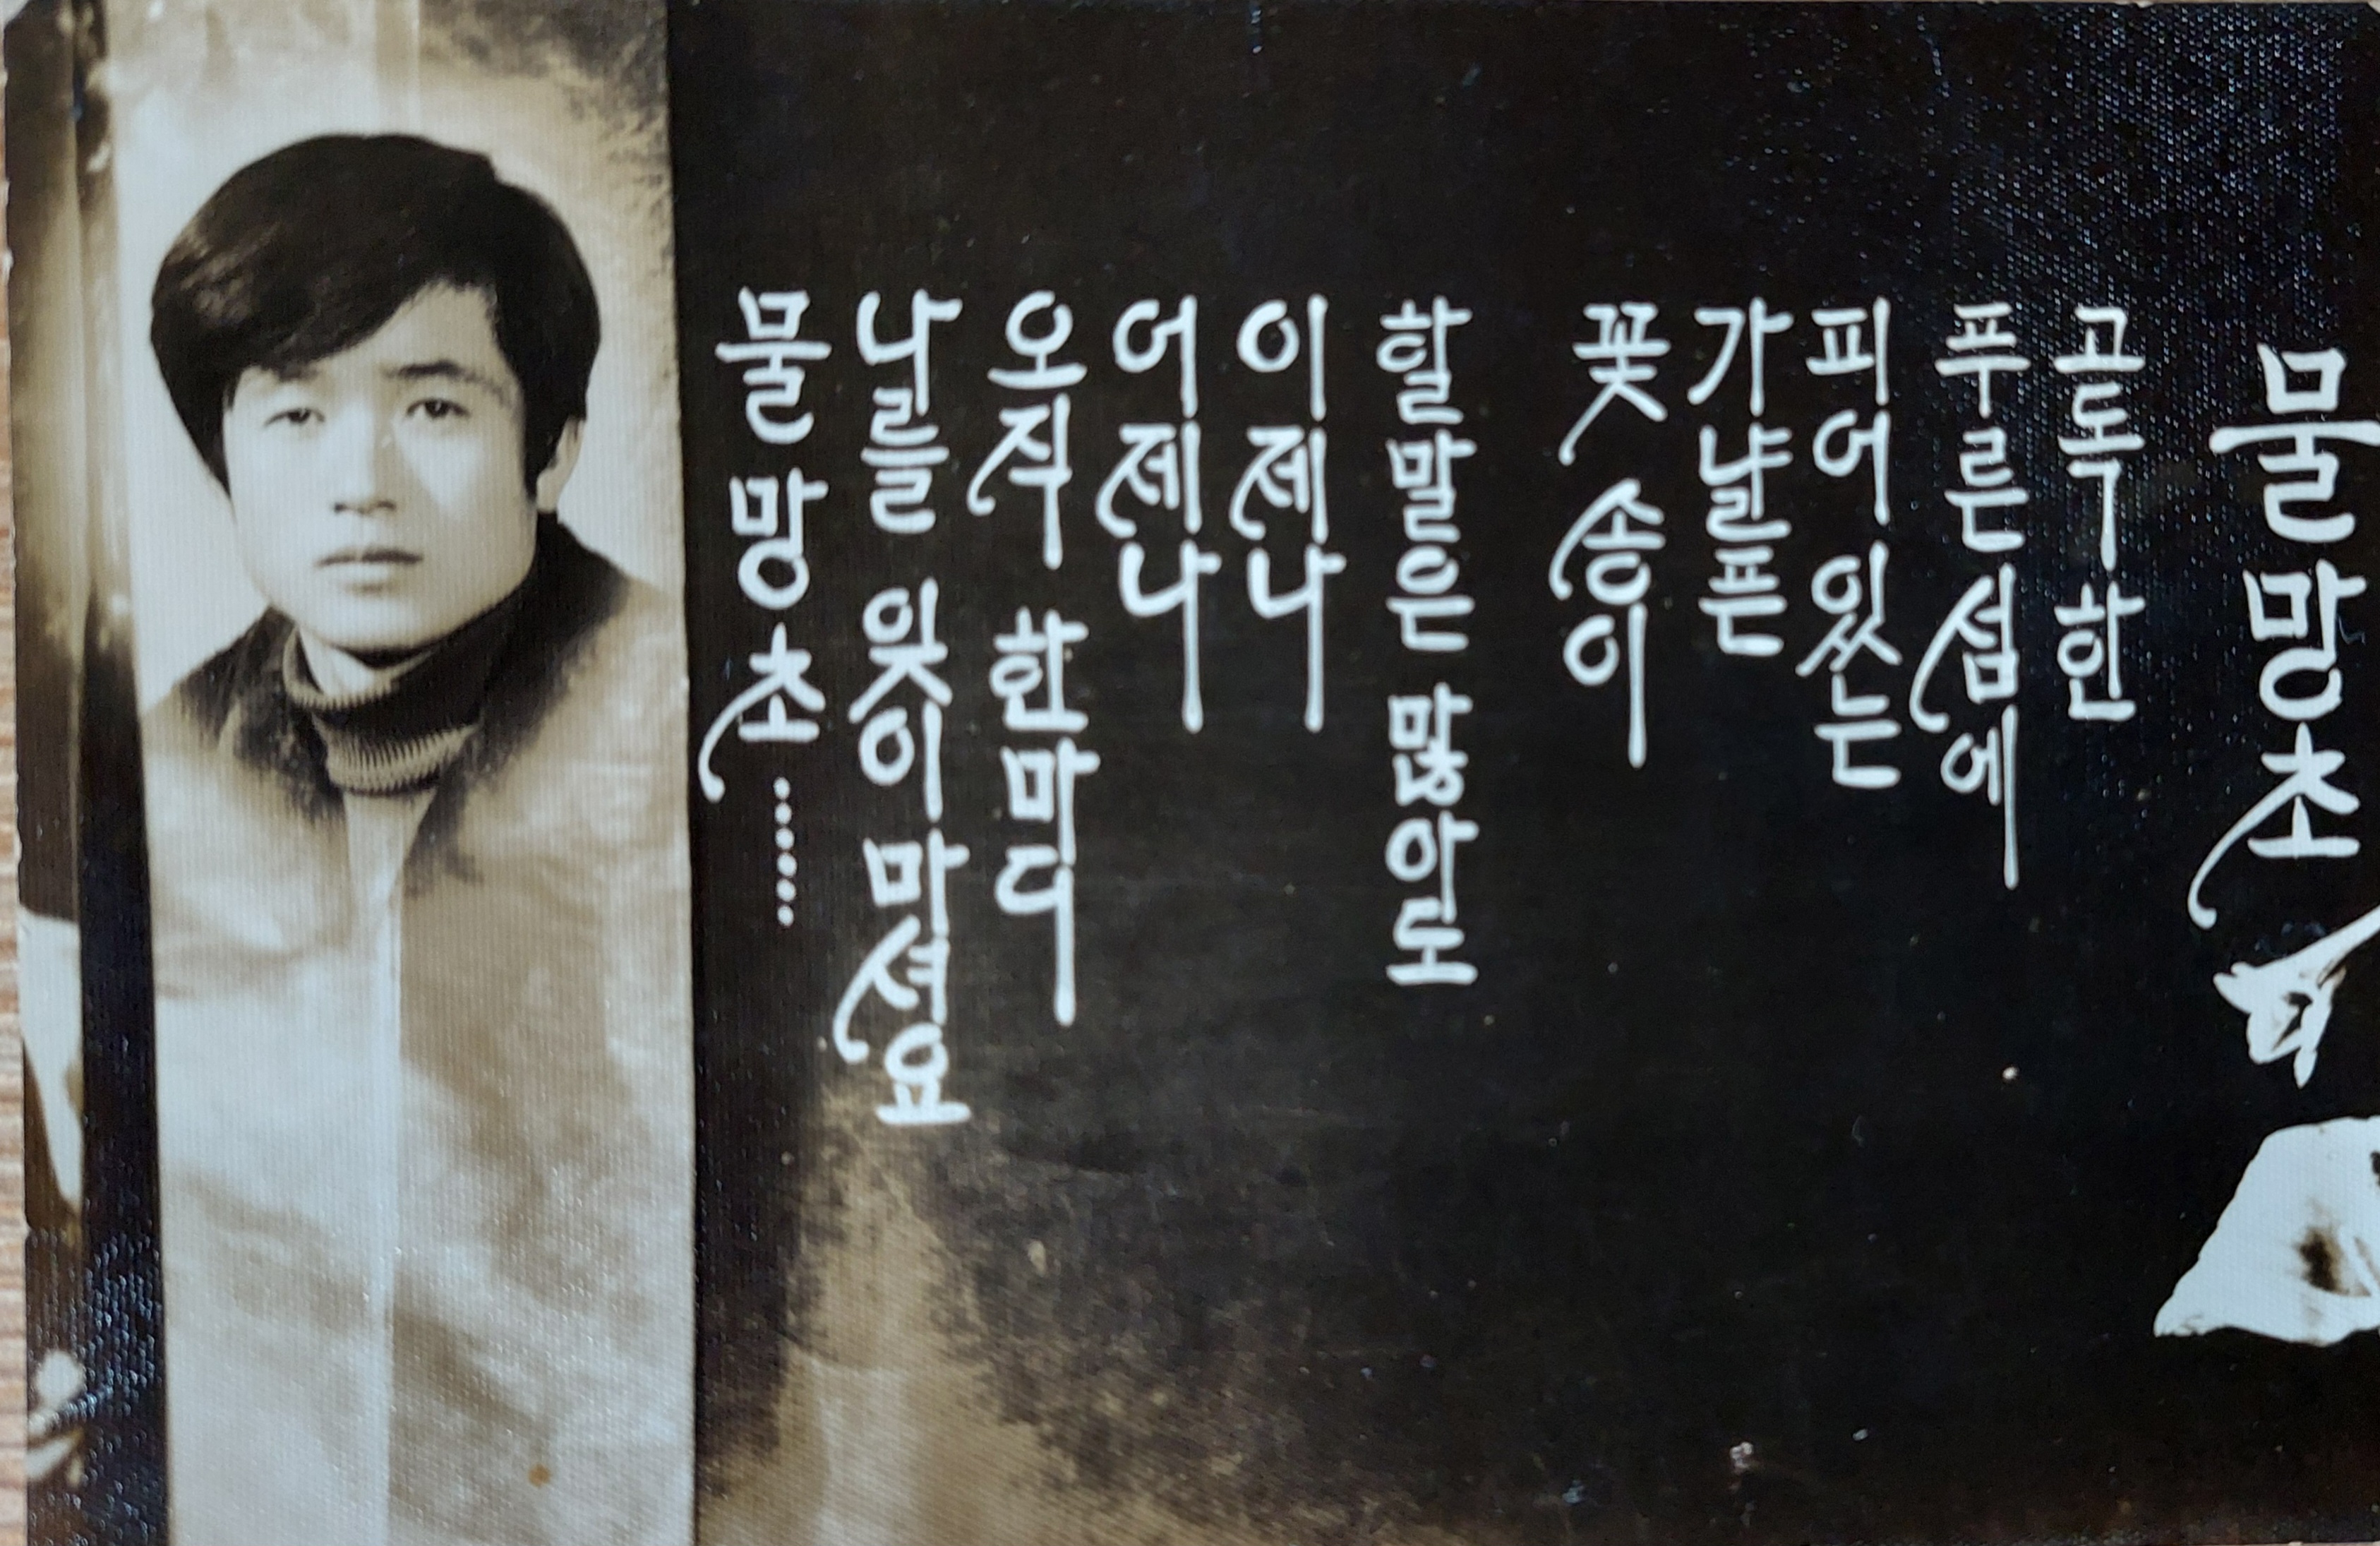 물망초
고독한
푸른 섬에
피어 있는
가냘픈
꽃 송이
할말은 많아도
이제나
어제나
오직 한마디
나를 잊이 마셔요
물망초……